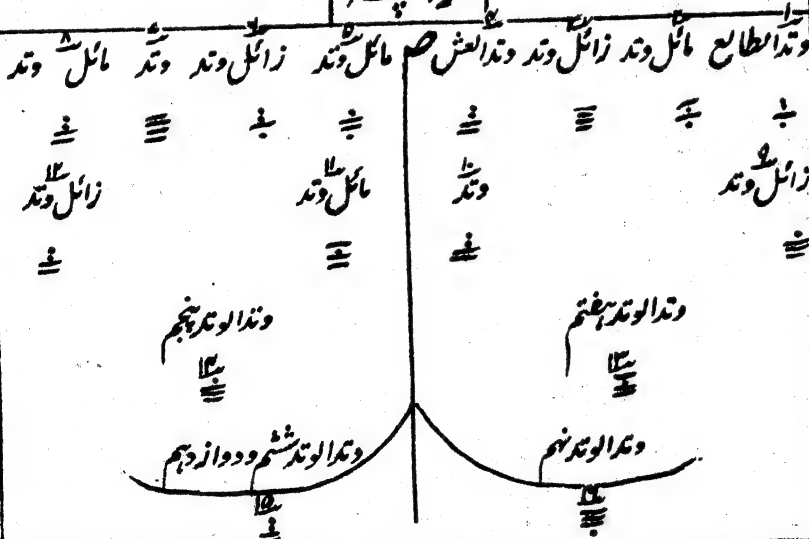 وتد الطالع مائل وتد زائل وتد وتد العش مائل وتد زائل وتد وتد مائل وتد
۹ ۱۰ ۱۱ ۱۲
زائل وتد وتد مائل وتد زائل وتد
وتد الوتد ہفتم وتد الوتد پنجم
۱۳
وتد الوتد نہم وتد الوتد ششم و دوازدہم
۱۵